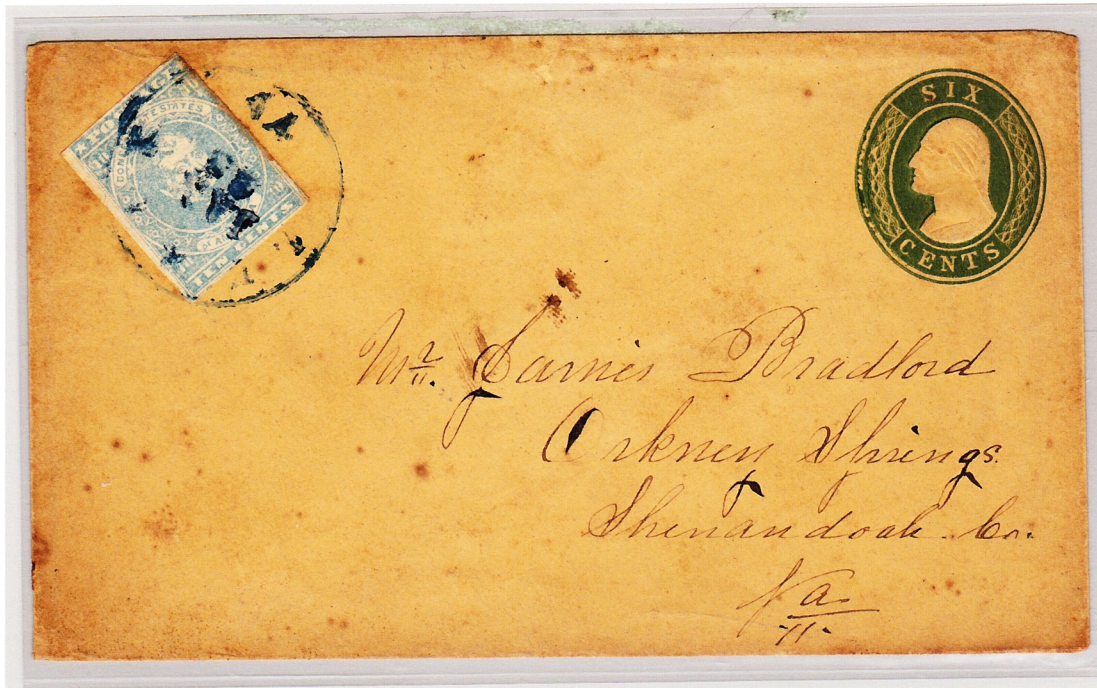 POSTAGE
CONFEDERATE STATES
10 10
10 10
TEN CENTS
SIX
CENTS
Mr. James Bradford
Orkney Springs
Shenandoah Co.
Va